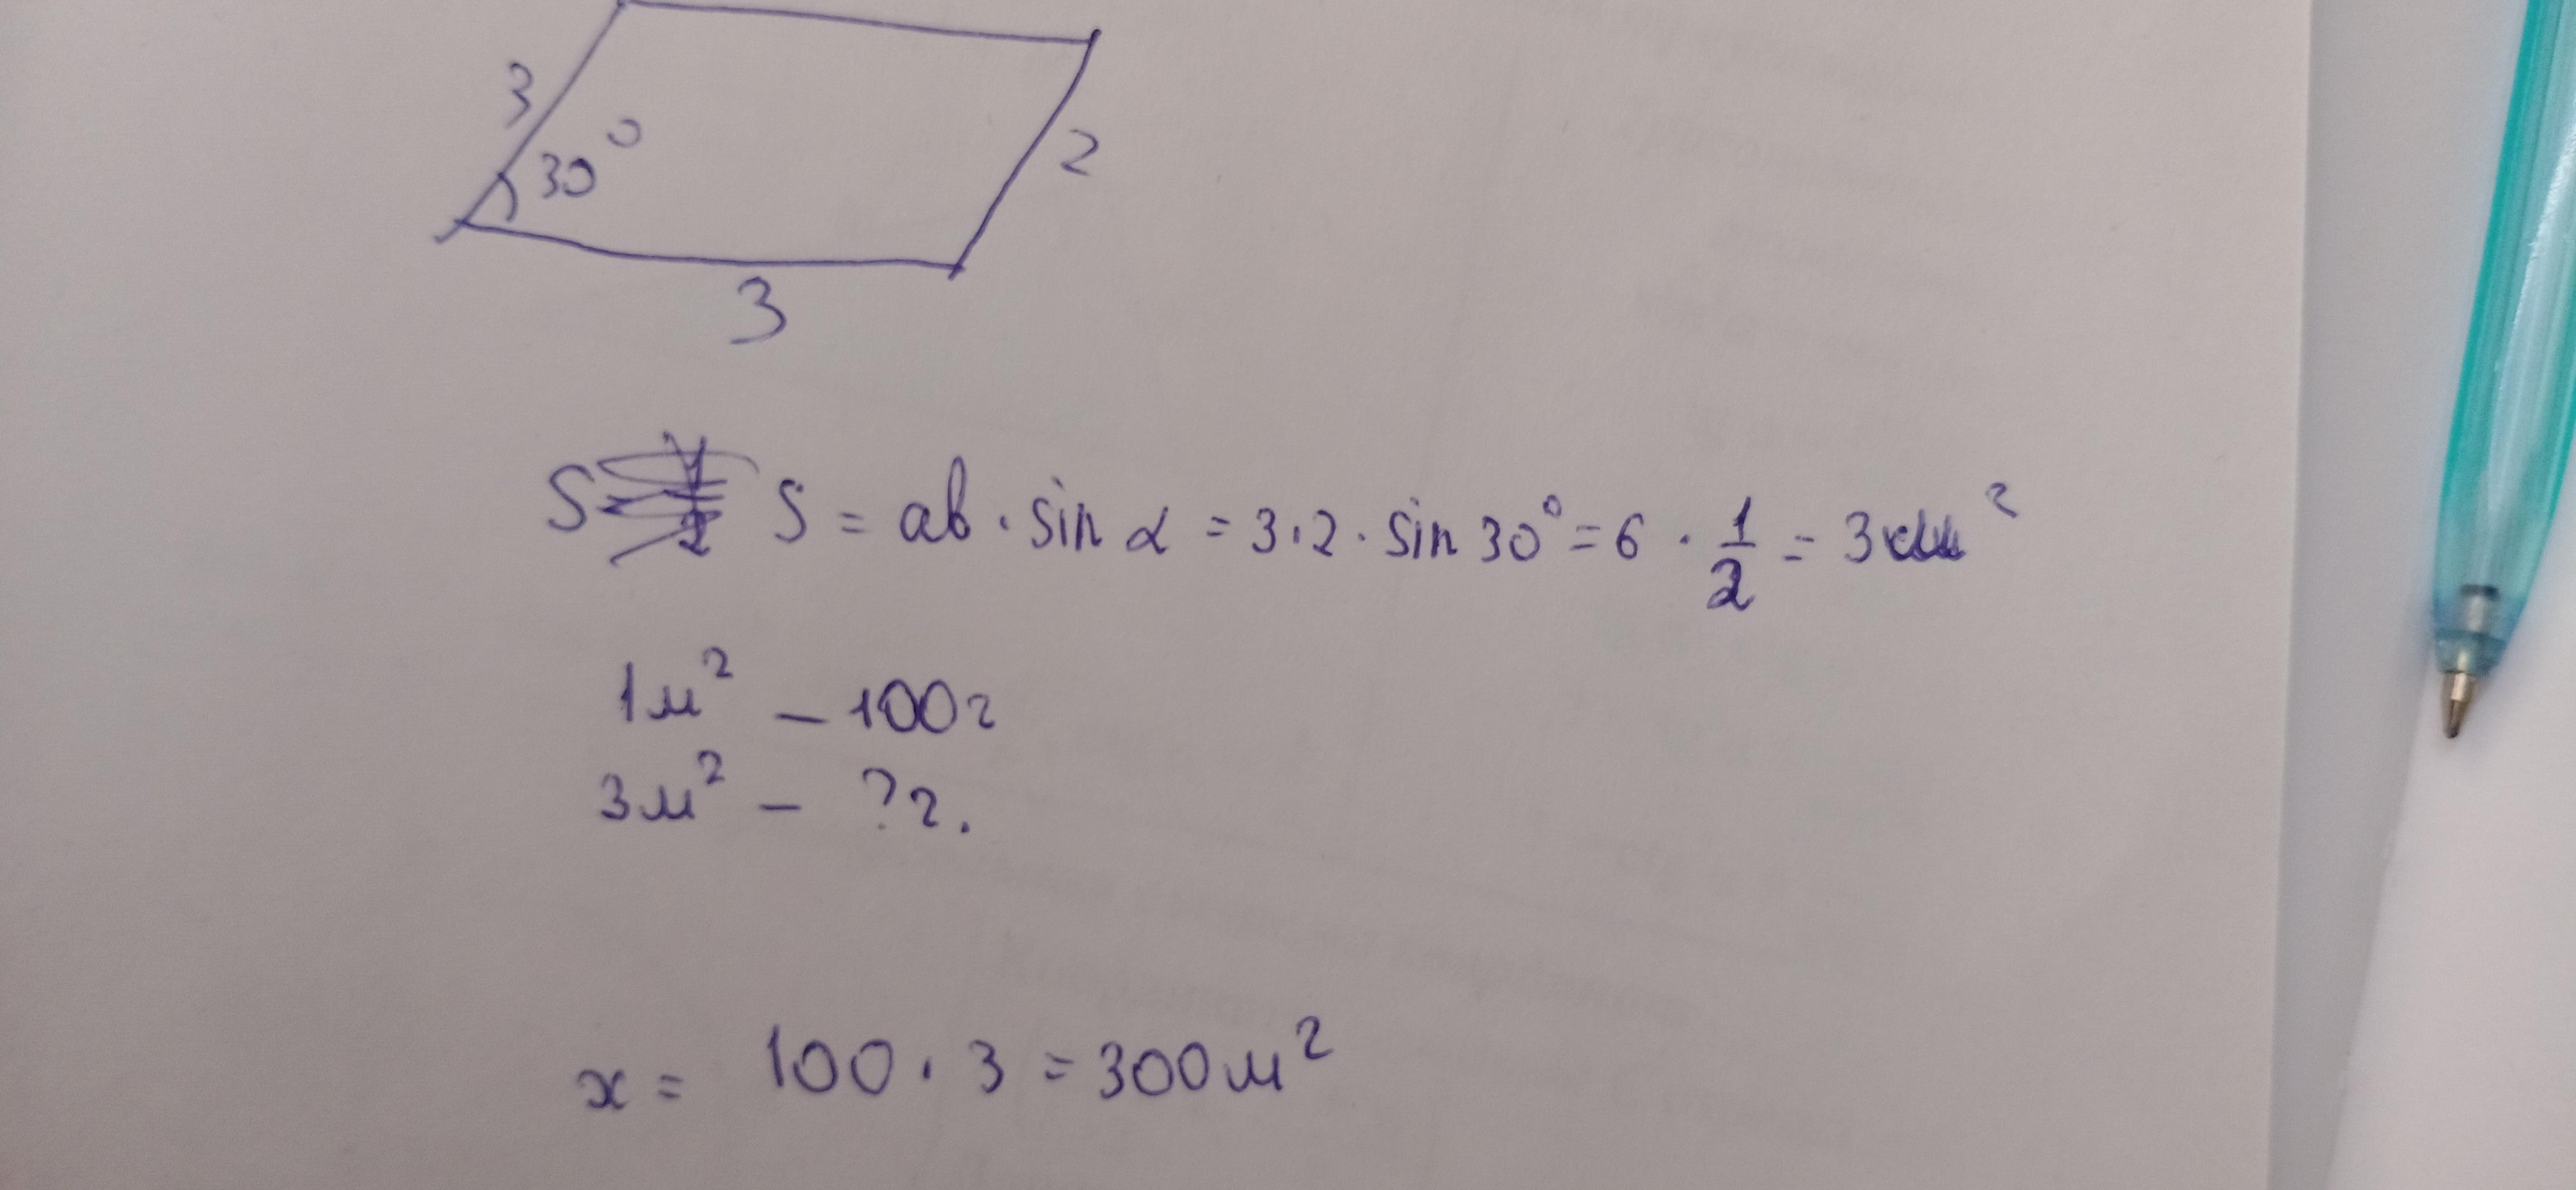 3
30°
2
3
S S = ab · sin α = 3·2 · sin 30° = 6 · 1/2 = 3 м²
1м² – 100г
3м² – ? г.
x = 100 · 3 = 300 м²